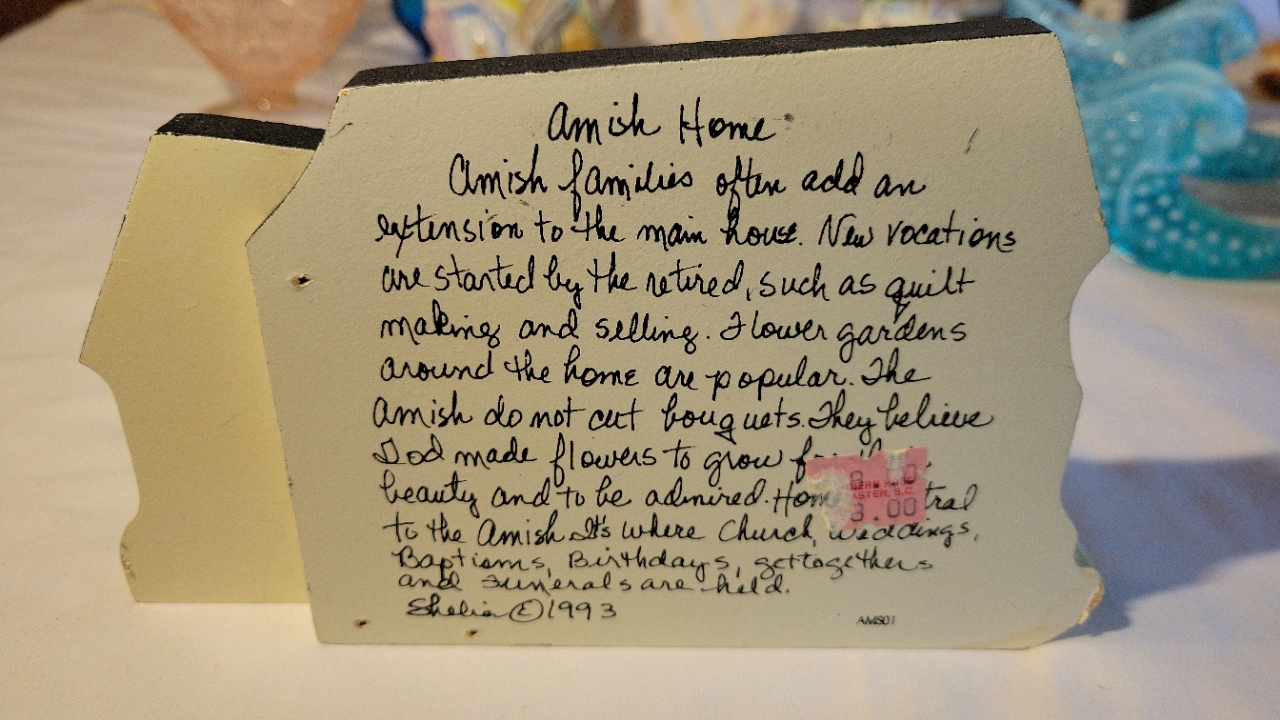 Amish Home
Amish families often add an
extension to the main house. New vocations
are started by the retired, such as quilt
making and selling. Flower gardens
around the home are popular. The
Amish do not cut bouquets. They believe
God made flowers to grow
beauty and to be admired.
to the Amish. It's where Church, Weddings,
Baptisms, Birthdays, gettogethers
and Funerals are held.
Shelia © 1993
AMS01
ASTER, S.C.
8.00